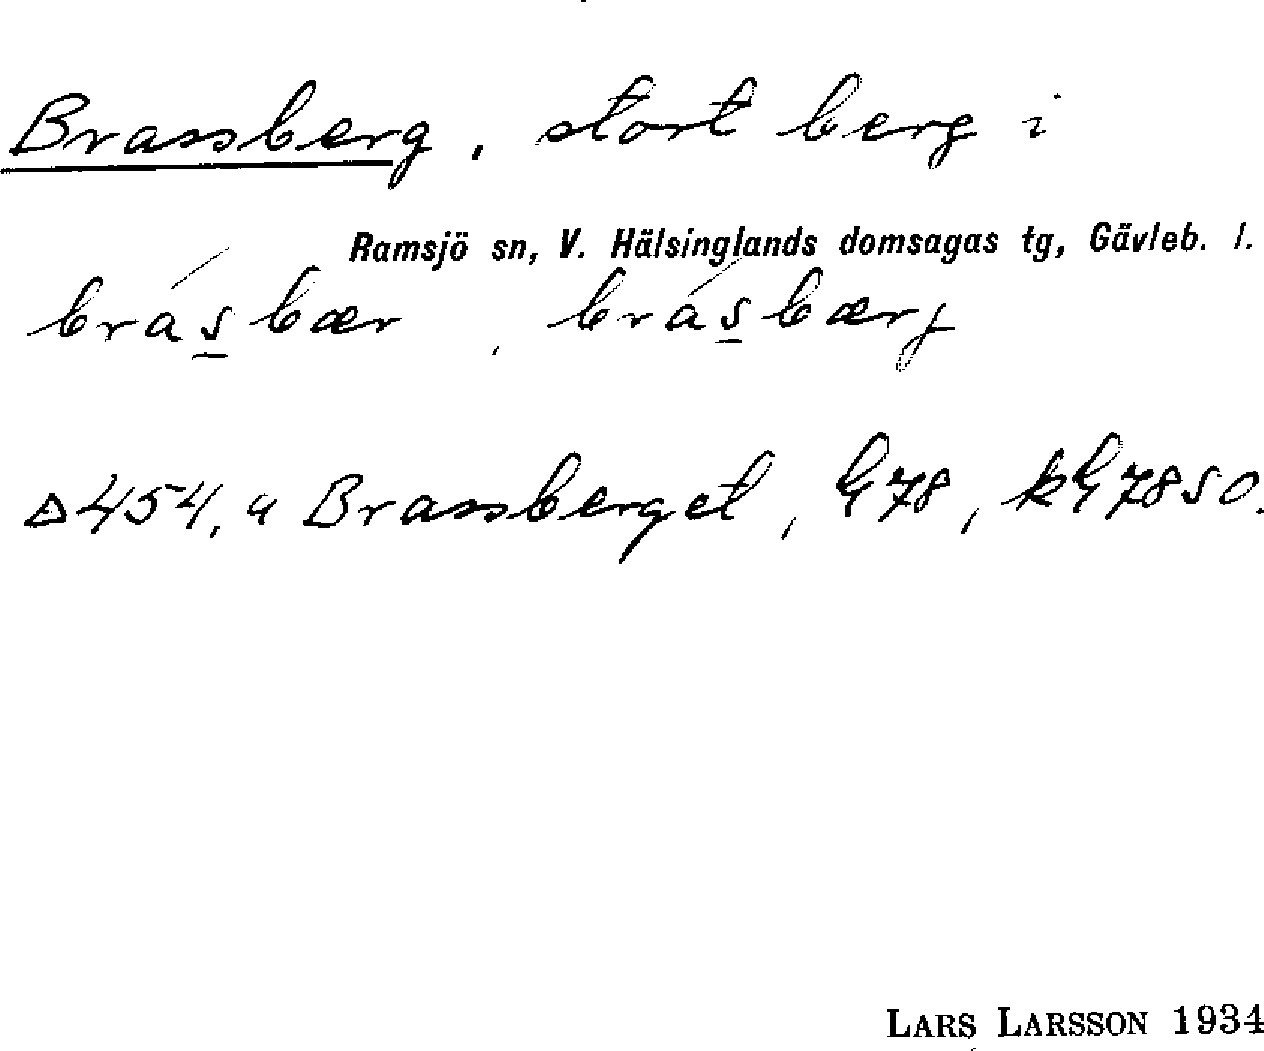 Brassberg, stort berg i
Ramsjö sn, V. Hälsinglands domsagas tg, Gävleb. l.
brásbær, brásbærj
Δ454, a Brassberget, h78, kh78SO.
LARS LARSSON 1934